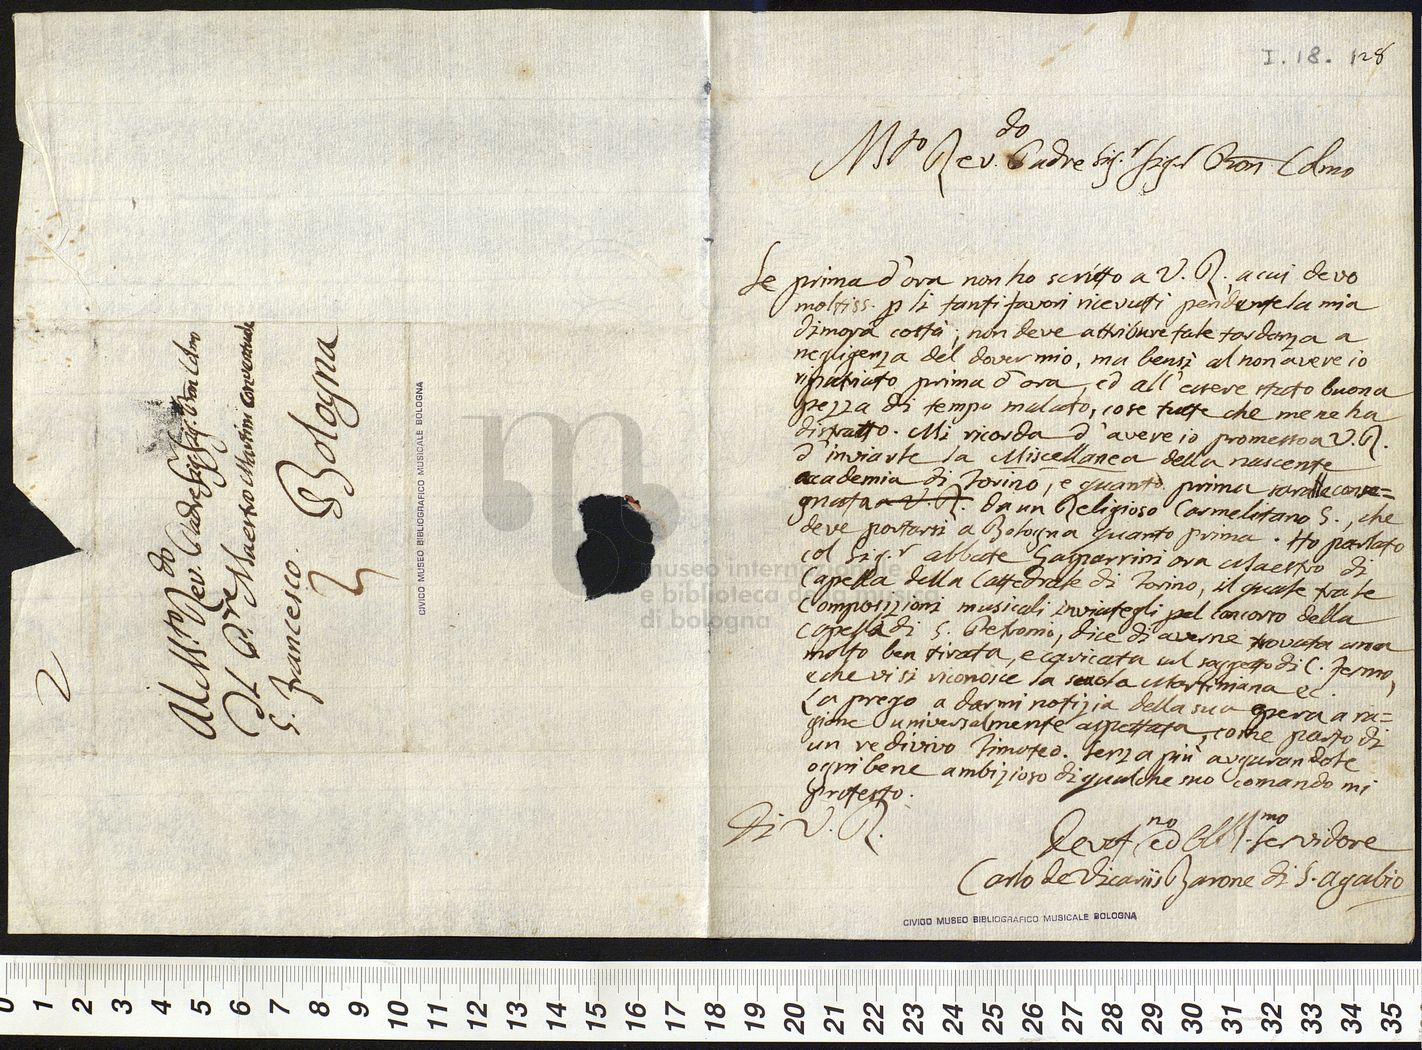 I. 18. 128
M.to Rev.do Padre Sig.r Sig.r Pron Colmo
Se prima d'ora non ho scritto a V. R. a cui devo
moltiss. p li tanti favori ricevuti pendente la mia
dimora costà, non deve attribure tale tardanza a
negligenza del dover mio, ma bensì al non avere io
ripatriato prima d'ora, ed all'essere stato buona
pezza di tempo malato, cose tutte che me ne ha
distratto. Mi ricorda d'avere io promesso a V. R.
d'inviarle la Miscellanea della nascente
accademia di Torino, e quanto prima sarà le conse=
gnata a V. R. da un Religioso Carmelitano S., che
deve portarsi a Bologna quanto prima. Ho parlato
col Sig.r abbate Gasparrini ora Maestro di
Capella della Cattedrale di Torino, il quale tra le
composizioni musicali inviategli pel concorso della
capella di S. Petronio, dice di averne trovata una
molto ben tirata, e caricata sul soggetto di C. fermo,
e che vi si riconosce la scuola Martiniana ec.
La prego a darmi notizia della sua opera a ra=
gione universalmente aspettata, come parto di
un redivivo Timoteo. Senza più augurandole
ogni bene ambizioso di qualche suo comando mi
protesto.
Di V. R.
Devot.no ed Obl.mo Servidore
Carlo de Vicariis Barone di S. Agabio
CIVICO MUSEO BIBLIOGRAFICO MUSICALE BOLOGNA
Al M.to Rev.do Padre Sig.r Sig. Pron Colmo
Il P.re Maestro Martini Conventuale
S. Francesco.
Bologna
2
CIVICO MUSEO BIBLIOGRAFICO MUSICALE BOLOGNA
museo internazionale
e biblioteca della musica
di bologna
0 1 2 3 4 5 6 7 8 9 10 11 12 13 14 15 16 17 18 19 20 21 22 23 24 25 26 27 28 29 30 31 32 33 34 35